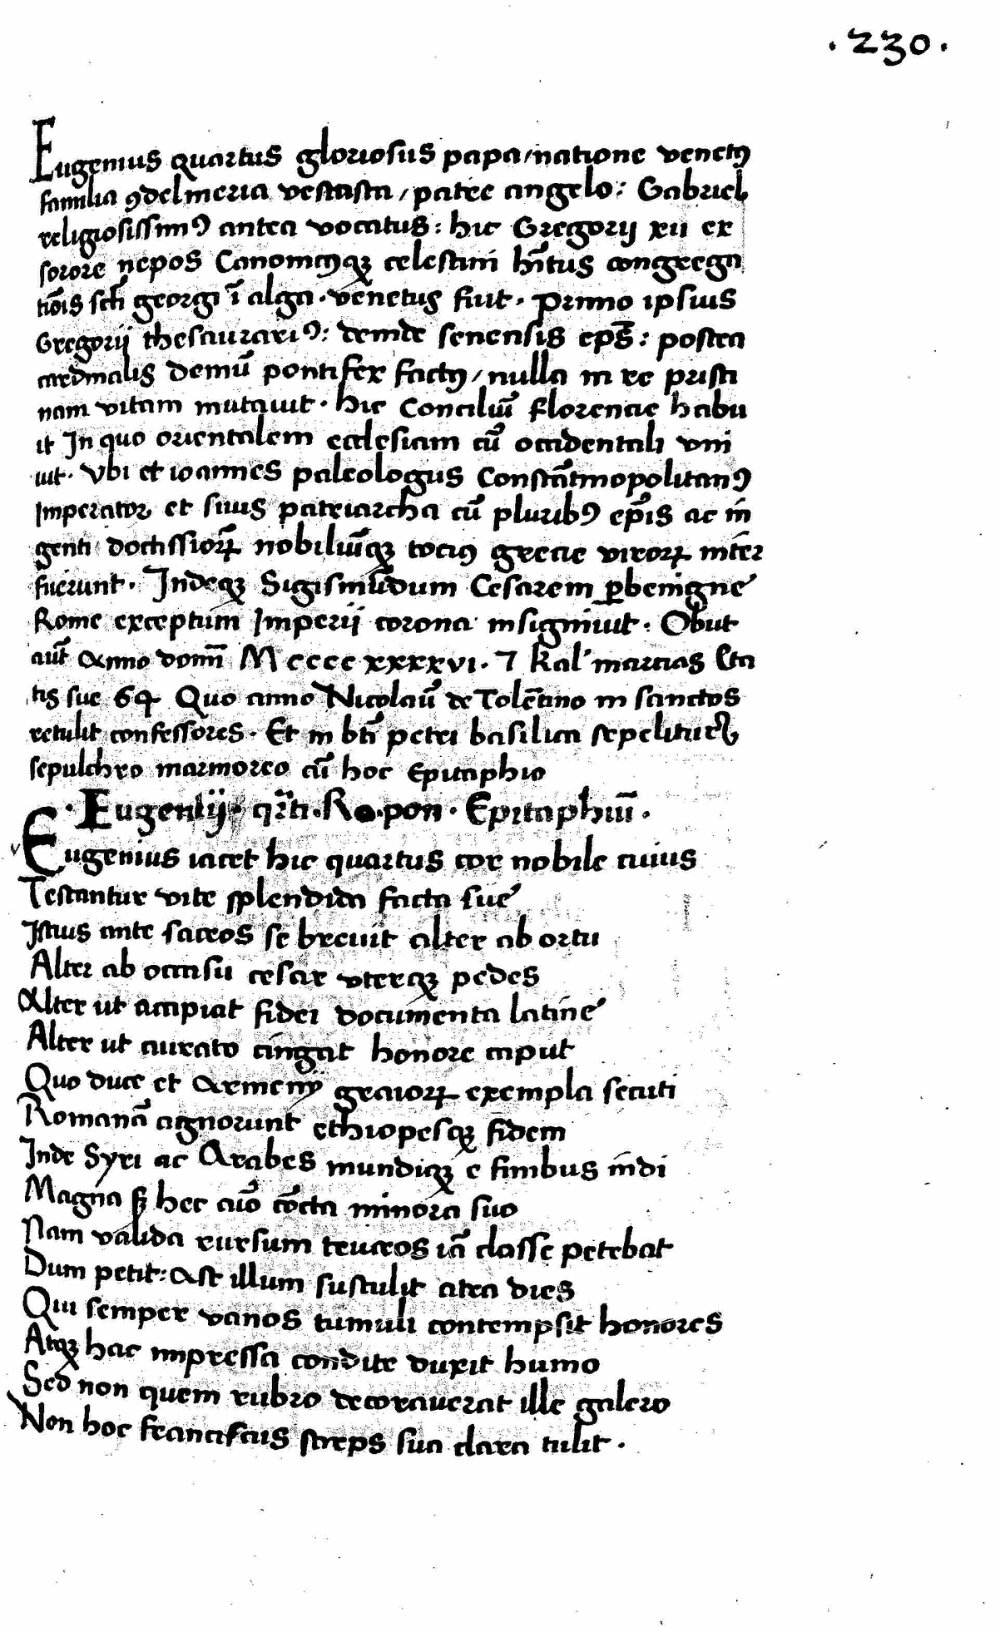 .230.
Eugenius quartus gloriosus papa/natione venetꝰ
familia ꝯdelmeria vestasta/patre angelo: Gabriel
religiosissimꝰ antea vocatus: hic Gregorij xii ex
sorore nepos Canonicꝰqꝫ celestini hĩtus congrega
tiõis scti georgi ĩ alga. venetus fuit. Primo ipsius
Gregorij thesaurariꝰ: deinde senensis eps̄: postea
cardinalis demũ pontifex factꝰ/nulla in re pristi
nam vitam mutavit. hic Conciliũ florencie habu
it In quo orientalem ecclesiam cũ occidentali vni
uit. Vbi et ioannes paleologus Constãtinopolitanꝰ
Imperator et suus patriarcha cũ pluribꝰ ep̃is ac in
genti doctissiorꝝ nobiliũqꝫ tociꝰ grecie virorꝝ inter
fuerunt. Indeqꝫ Sigismũdum Cesarem ꝑbenigne
Rome exceptum Imperij corona insigniuit. Obiit
aũt Anno domĩ Mccccxxxxvi. 7 kal' marcias Eta
tis sue 64 Quo anno Nicolaũ de Tolẽtino in sanctos
retulit confessores. Et in bti petri basilica sepelitur
sepulchro marmoreo cũ hoc Epitaphio
. Eugenij. qrti. Ro. pon. Epitaphiũ.
Eugenius iacet hic quartus cor nobile cuius
Testantur vite splendida facta sue
Istius ante sacros se breuit alter ab ortu
Alter ab occasu cesar vterqꝫ pedes
Alter ut accipiat fidei documenta latine
Alter ut aurato cingat honore caput
Quo duce et Armenij graiorꝝ exempla secuti
Romanã agnorunt ethiopesqꝫ fidem
Inde Syri ac Arabes mundiqꝫ e finibus indi
Magna sꝫ hec aĩo cũcta minora suo
Nam valida rursum teucros iã classe petebat
Dum petit: Ast illum sustulit atra dies
Qui semper vanos tumuli contempsit honores
Atqꝫ hac impressa condite duxit humo
Sed non quem rubro decorauerat ille galero
Non hoc franciscus stirps sua clara tulit.